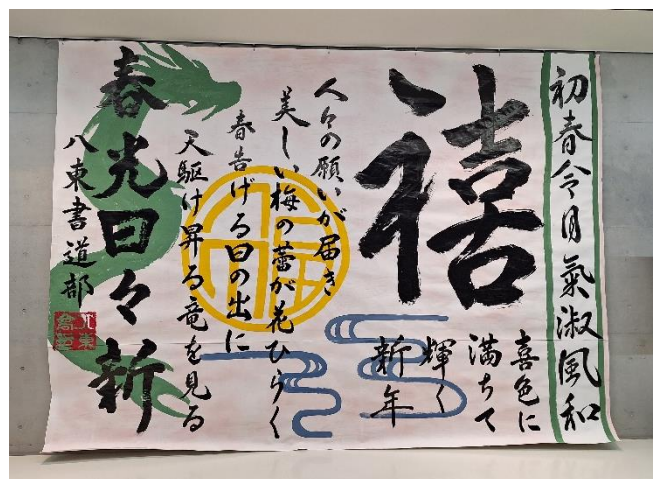 初春令月氣淑風和
禧
喜色に
満ちて
輝く
新年
人々の願いが届き
美しい梅の蕾が花ひらく
春告げる日の出に
天駆け昇る竜を見る
春光日々新
八東書道部